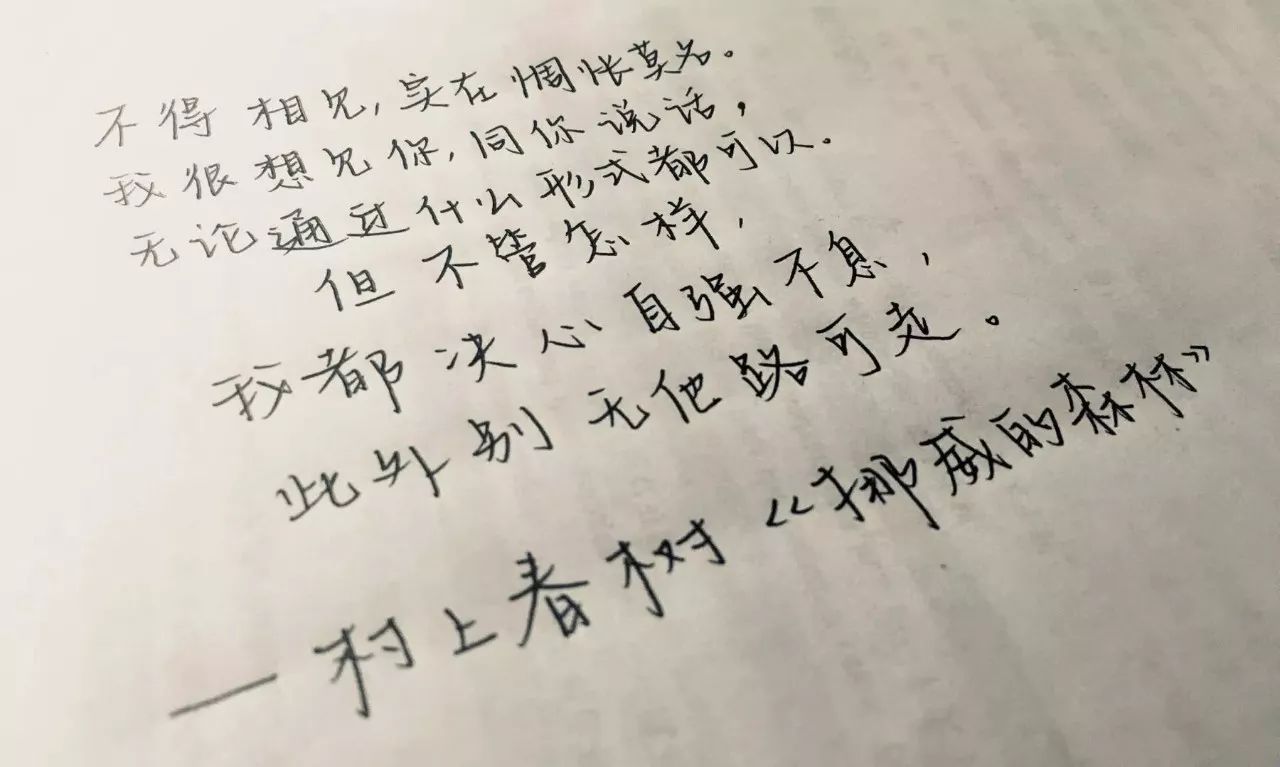 不得相见,实在惆怅莫名。
我很想见你,同你说话,
无论通过什么形式都可以.
但不管怎样,
我都决心自强不息,
此外别无他路可走。
—村上春树《挪威的森林》